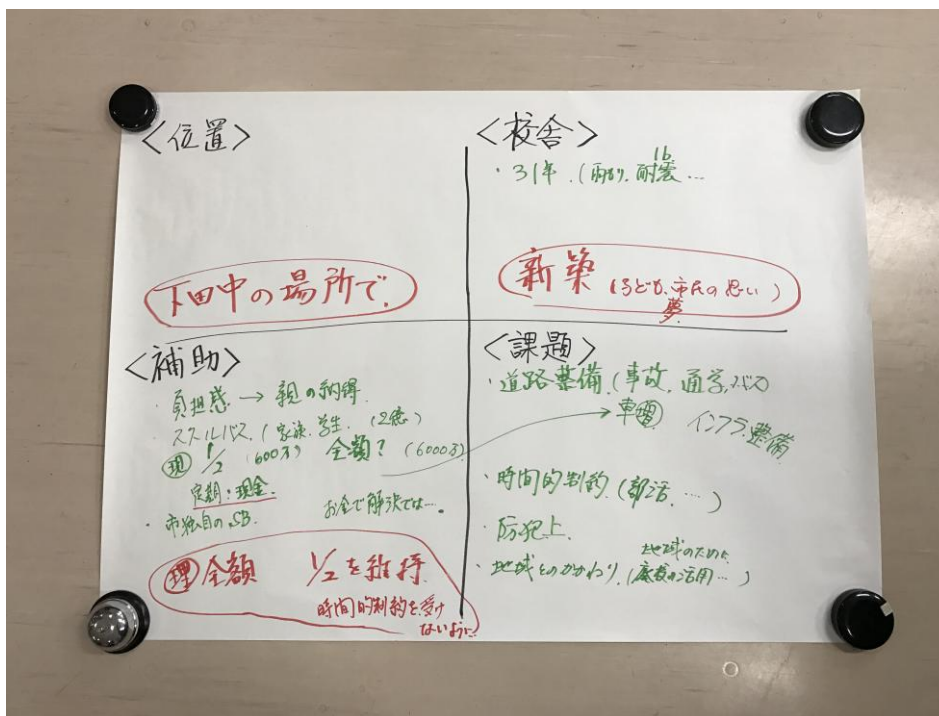 <位置>
下田中の場所で.
<校舎>
・31年.(雨もり.耐震…
16
新築(子ども、市民の思い)
夢
<補助>
・負担感→親の納得
・スクールバス.(家族.学生.(2億)
現 1/2(600万) 全額?(6000万)
定期:現金
お金で解決では…。
・市独自のSB.
理 全額 1/2を維持
時間的制約を受け
ないように
<課題>
・道路整備.(事故、通学、バス)
インフラ整備
・時間的制約.(部活.…)
・防犯上.
・地域とのかかわり.(廃校の活用…)
地域のために